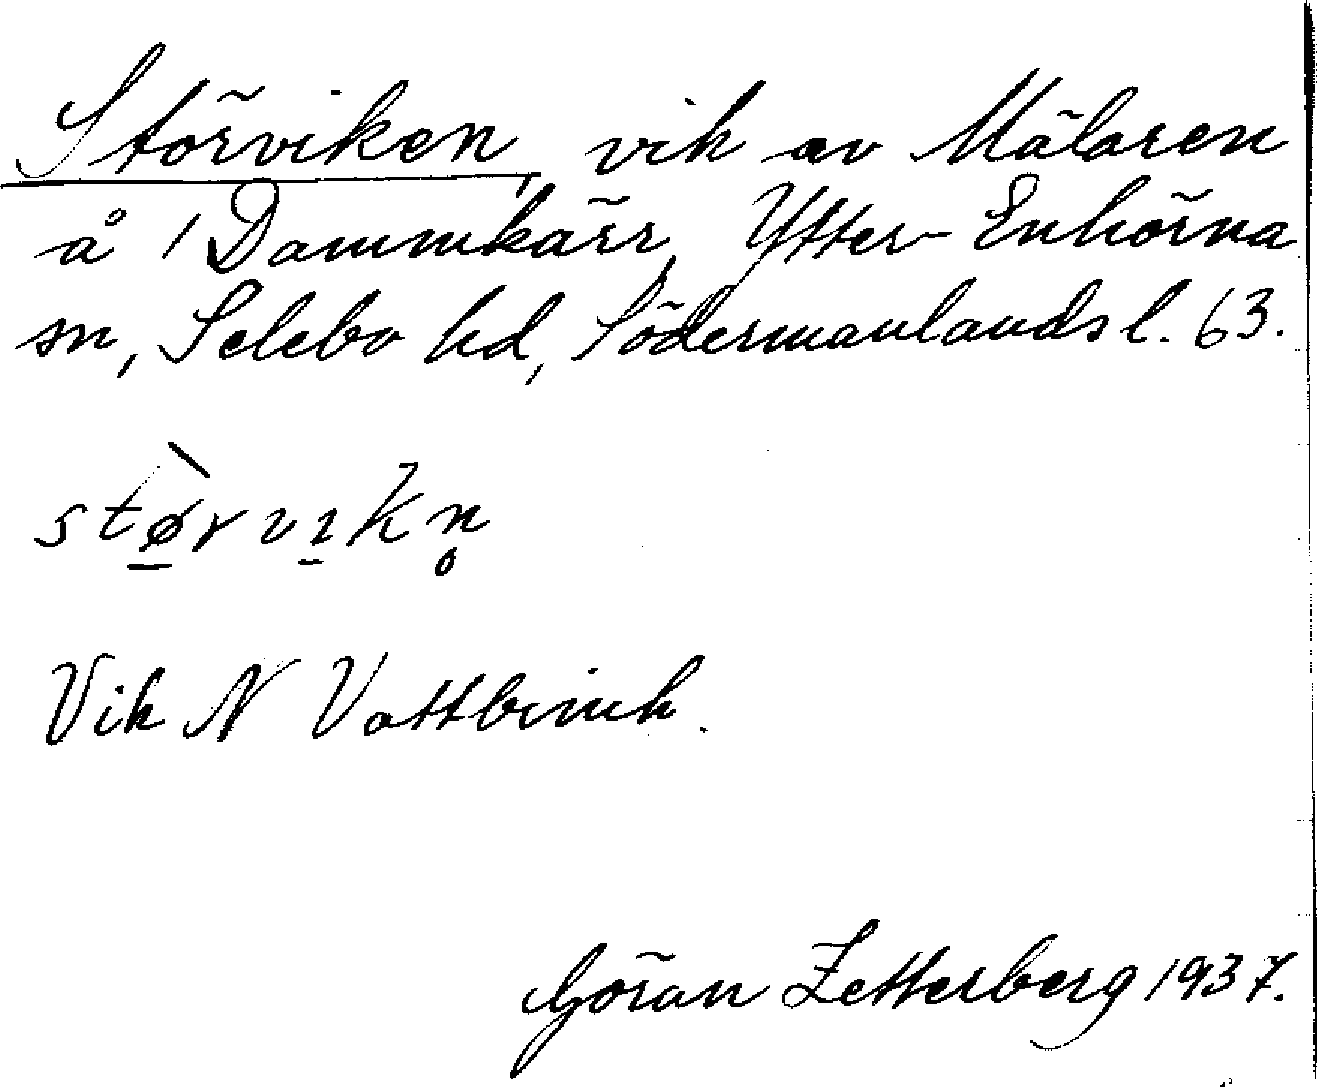 Störviken, vik av Mälaren
å 1 Dammkärr, Ytter-Enhörna
sn, Selebo hd, Södermanlands l. 63.
stø̱̀rvı̱kn̥
Vik N Vattbrink.
Göran Zetterberg 1937.